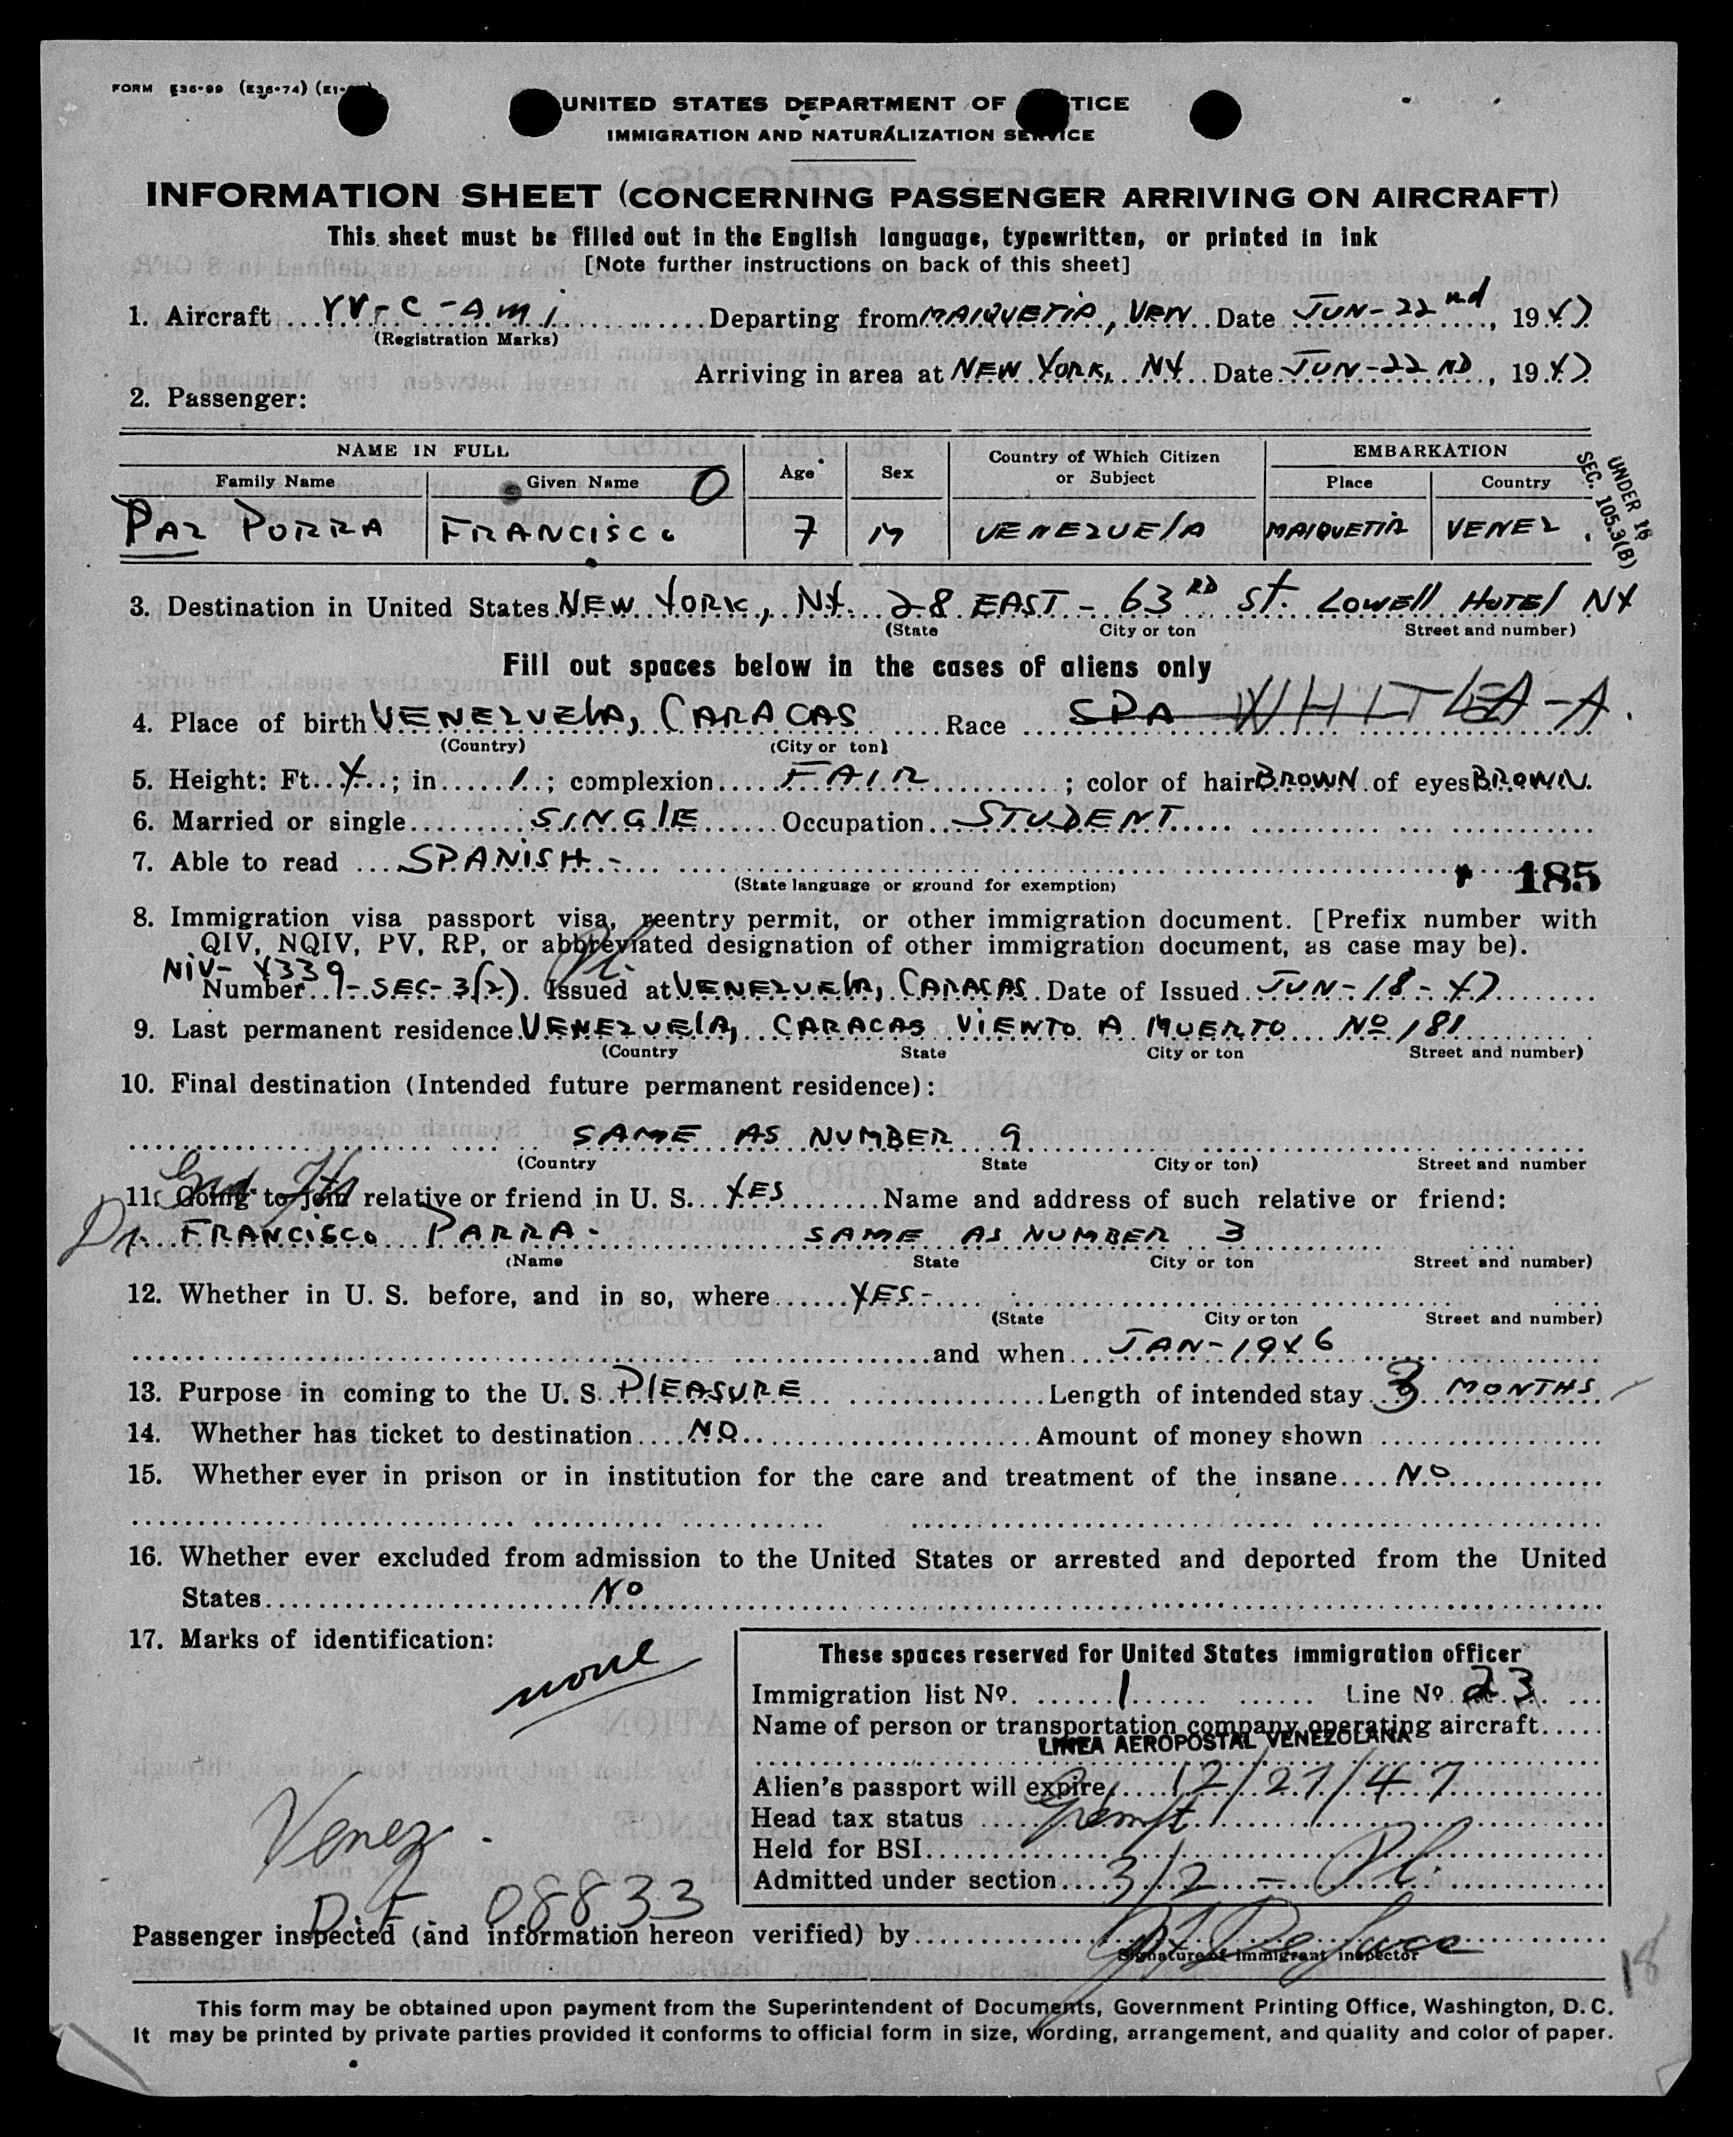 FORM E36-99 (E36-74) (E1-
UNITED STATES DEPARTMENT OF TICE
IMMIGRATION AND NATURALIZATION SERVICE
INFORMATION SHEET (CONCERNING PASSENGER ARRIVING ON AIRCRAFT)
This sheet must be filled out in the English language, typewritten, or printed in ink
[Note further instructions on back of this sheet]
1. Aircraft YV-C-AMI Departing from MAIQUETIA, VEN Date JUN-22nd, 1947
(Registration Marks)
Arriving in area at NEW YORK, NY Date JUN-22 ND, 1947
2. Passenger:
NAME IN FULL Age Sex Country of Which Citizen or Subject EMBARKATION
Family Name Given Name O Place Country
PAZ PORRA FRANCISCO 7 M VENEZUElA MAIQUETIA VENEZ.
UNDER 16
SEC. 105.3(B)
3. Destination in United States NEW YORK, NY. 28 EAST - 63RD St. LOWEll HOTEl NY
(State City or ton Street and number)
Fill out spaces below in the cases of aliens only
4. Place of birth VENEZUElA, CARACAS Race SPA WHITE A-A.
(Country) (City or ton)
5. Height: Ft. 4; in. 1; complexion FAIR; color of hair BROWN of eyes BROWN.
6. Married or single SINGlE Occupation STUDENT
7. Able to read SPANISH.-
(State language or ground for exemption)
185
8. Immigration visa passport visa, reentry permit, or other immigration document. [Prefix number with
QIV, NQIV, PV, RP, or abbreviated designation of other immigration document, as case may be).
NIV- 4339 Pl.
Number 1-SEC-3(2). Issued at VENEZUElA, CARACAS Date of Issued JUN-18-47
9. Last permanent residence VENEZUElA, CARACAS VIENTO A MUERTO No 181
(Country State City or ton Street and number)
10. Final destination (Intended future permanent residence):
SAME AS NUMBER 9
(Country State City or ton) Street and number
11. Going to join relative or friend in U. S. YES Name and address of such relative or friend:
Dr. FRANCISCO PARRA- SAME AS NUMBER 3
(Name State City or ton Street and number)
12. Whether in U. S. before, and in so, where YES-
(State City or ton Street and number)
and when JAN-1946
13. Purpose in coming to the U. S. PlEASURE Length of intended stay 3 MONTHS
14. Whether has ticket to destination NO Amount of money shown
15. Whether ever in prison or in institution for the care and treatment of the insane NO
16. Whether ever excluded from admission to the United States or arrested and deported from the United
States NO
17. Marks of identification:
none
These spaces reserved for United States immigration officer
Immigration list No. 1 Line No 23
Name of person or transportation company operating aircraft
LINEA AEROPOSTAL VENEZOLANA
Alien's passport will expire 12/27/47
Head tax status Exempt
Held for BSI
Admitted under section 3/2 - Pl.
Venez.
D.F. - 08833
Passenger inspected (and information hereon verified) by
Signature of immigrant inspector
18
This form may be obtained upon payment from the Superintendent of Documents, Government Printing Office, Washington, D. C.
It may be printed by private parties provided it conforms to official form in size, wording, arrangement, and quality and color of paper.